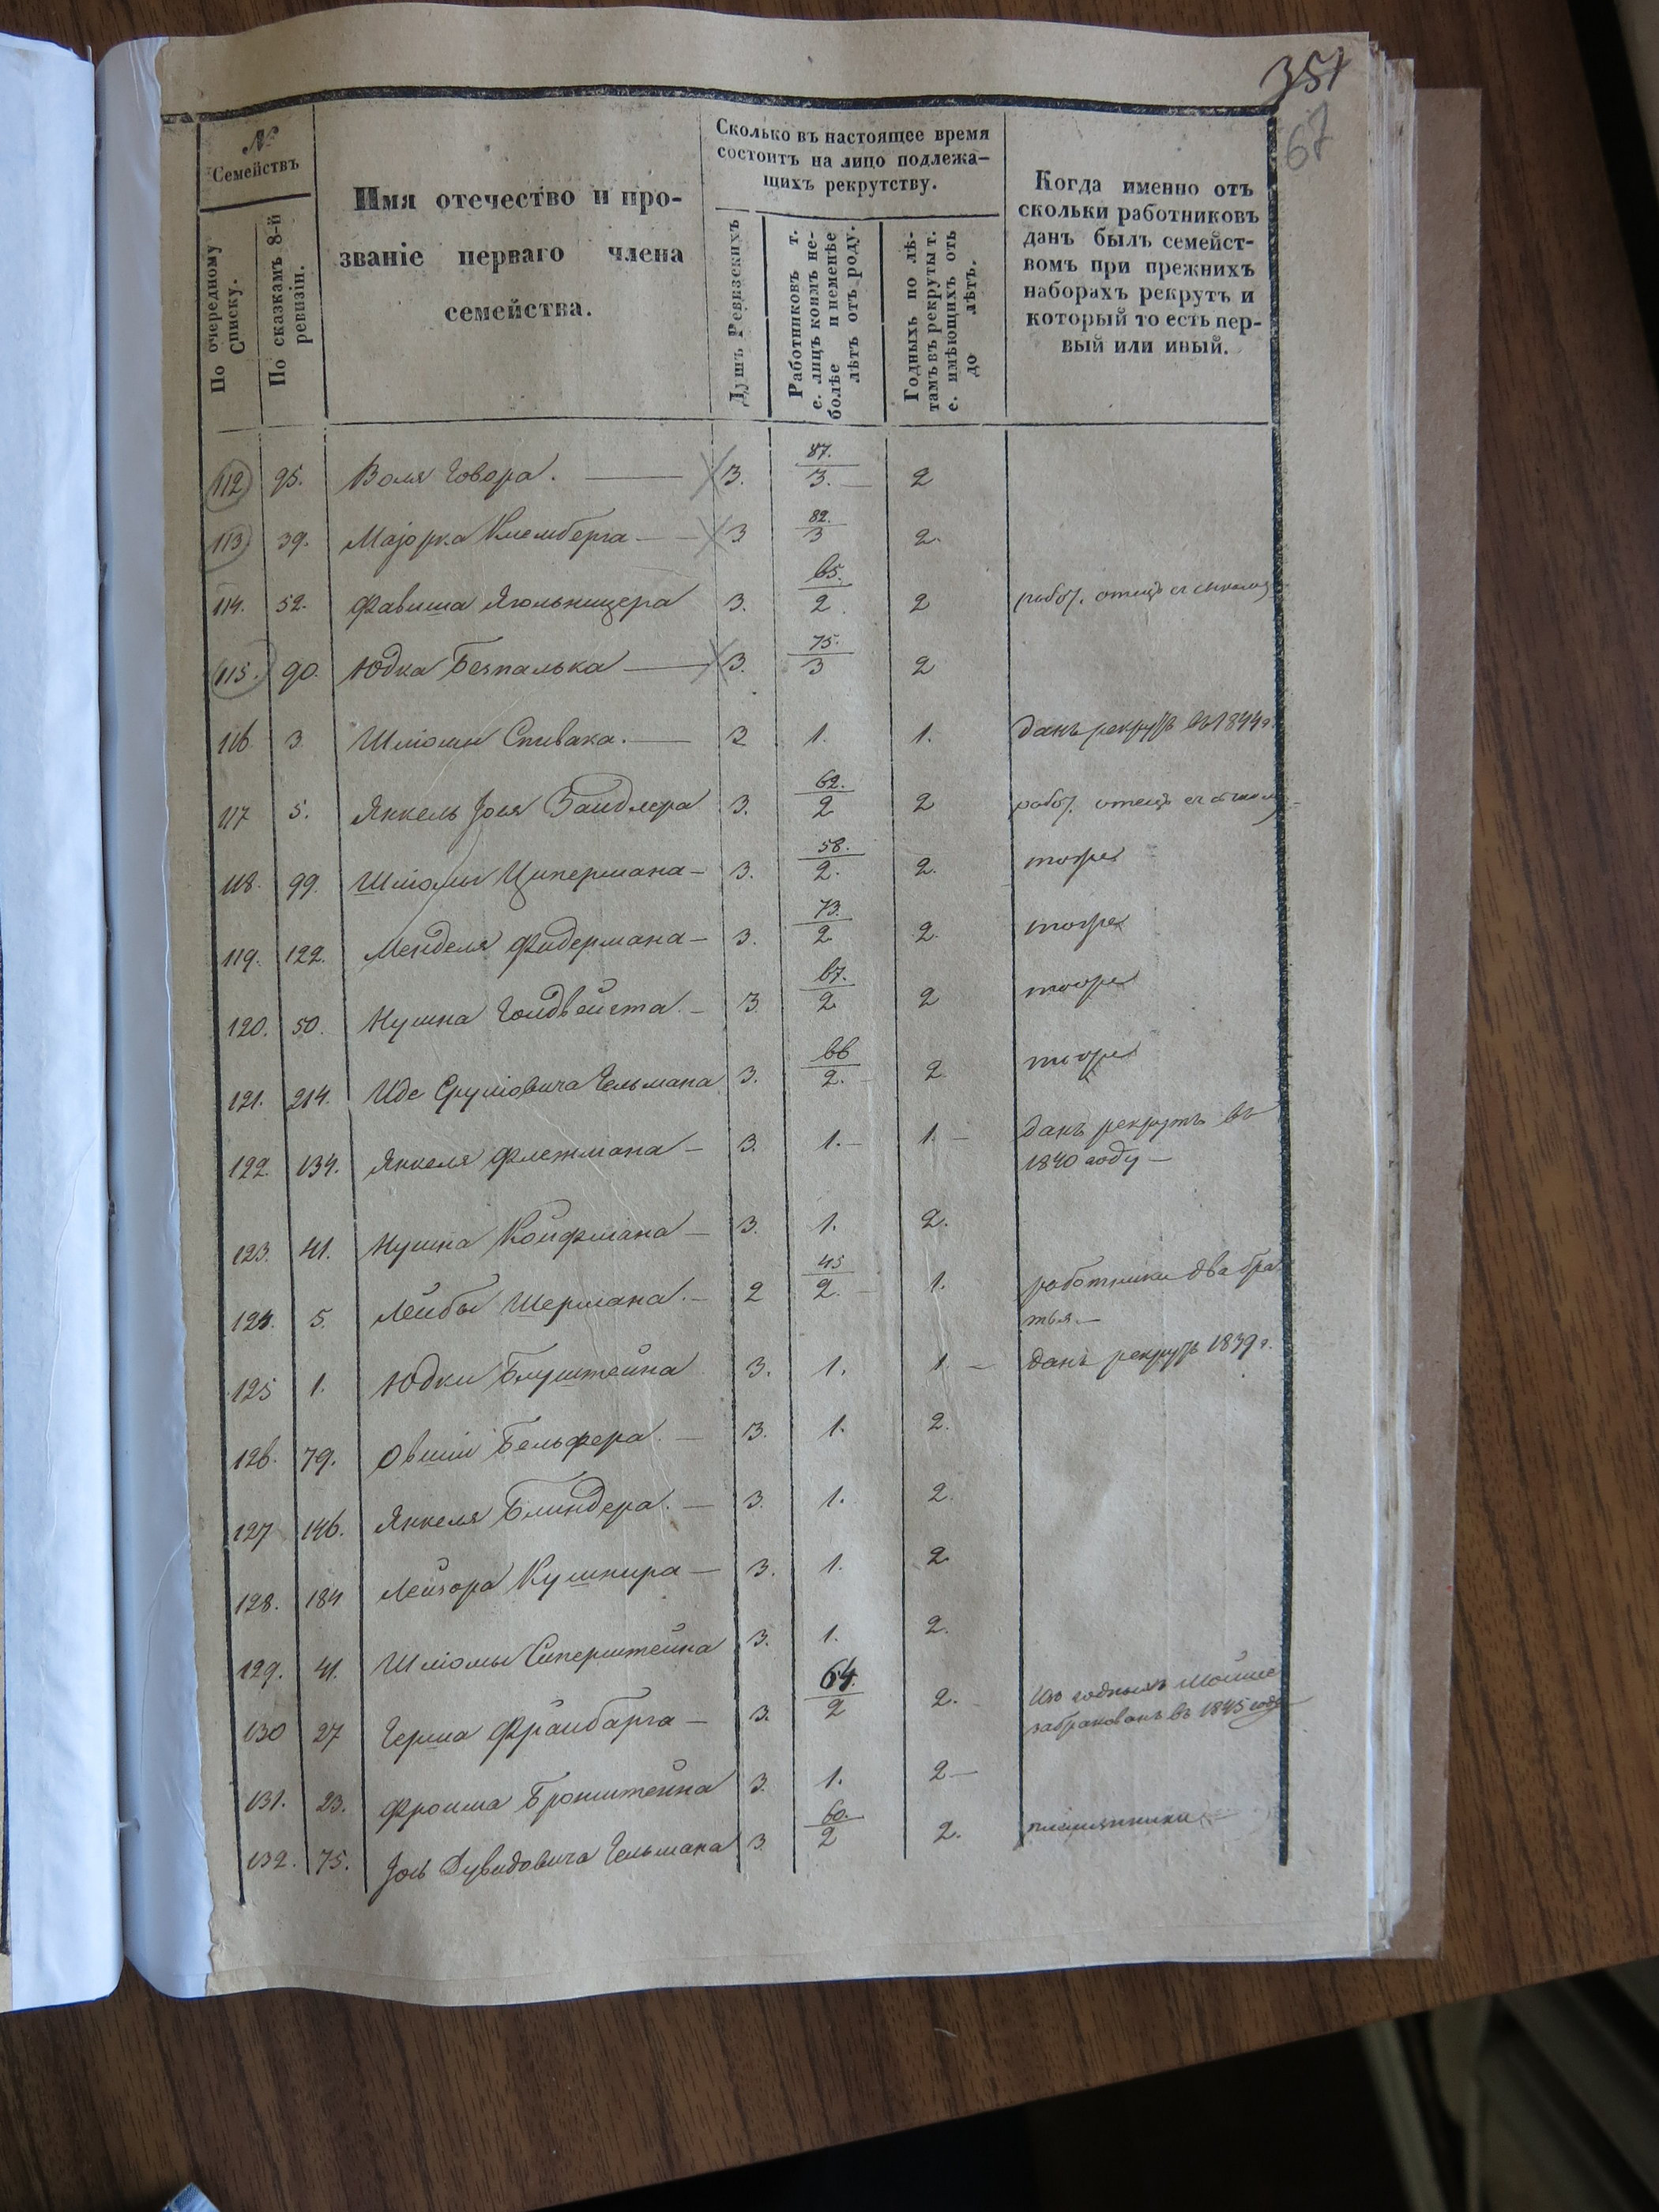 351
67
№
Семействъ
По очередному
Списку.
По сказкамъ 8-й
ревизіи.
Имя отечество и про-
званіе перваго члена
семейства.
Сколько въ настоящее время
состоитъ на лицо подлежа-
щихъ рекрутству.
Душъ Ревизскихъ
Работниковъ т.
е. лицъ коимъ не-
болѣе и неменѣе
лѣтъ отъ роду.
Годныхъ по лѣ-
тамъ въ рекруты т.
е. имѣющихъ отъ
до лѣтъ.
Когда именно отъ
скольки работниковъ
данъ былъ семейст-
вомъ при прежнихъ
наборахъ рекрутъ и
который то есть пер-
вый или иный.
87.
112 95. Воля Говора. — 3. 3. — 2
82.
113 39. Маjорка Клемберга — 3 3 2.
65.
114. 52. Фавиша Ягольницера 3. 2. 2 работ. отецъ съ сыномъ
75.
115. 90. Юдка Безпалька — 3. 3 2
116 3 Шліомы Спивака. — 3 1. 1. данъ рекрутъ въ 1844 г.
62.
117 5. Янкель Jося Заидлера 3. 2 2 работ. отецъ съ сыномъ
58.
118. 99. Шліомы Ципермана — 3. 2. 2. тоже
73.
119. 122. Менделя Фидермана — 3. 2. 2. тоже
67.
120. 50. Нушна — 3. 2 2 тоже
66
121. 214. Иде Сруліовича Гельмана 3. 2. — 2 тоже
122. 134. Янкеля Флежмана — 3. 1. — 1. — данъ рекрутъ въ
1840 году —
123. 41. Нушна Койфмана — 3. 1. 2.
45
124. 5. Лейбы Шермана. — 2 2. — 1. работники два бра
тья. —
125 1. Юдки Блуштейна 3. 1. 1 — данъ рекрутъ 1839 г.
126. 79. Овшіи Бельфера. — 3. 1. 2.
127 146. Янкеля Блиндера. — 3. 1. 2.
128. 184 Лейзора Кушнира — 3. 1. 2
129. 41. Шліомы Сиперштейна 3. 1. 2.
64.
130 27 Герша Фраибарга — 3. 2 2. Изъ годныхъ Мойше
забракованъ въ 1845 году
131. 23. Фроима Бронштейна 3. 1. 2 —
60.
132. 75. Jось Дувидовича Гельмана 3. 2 2. племянники —